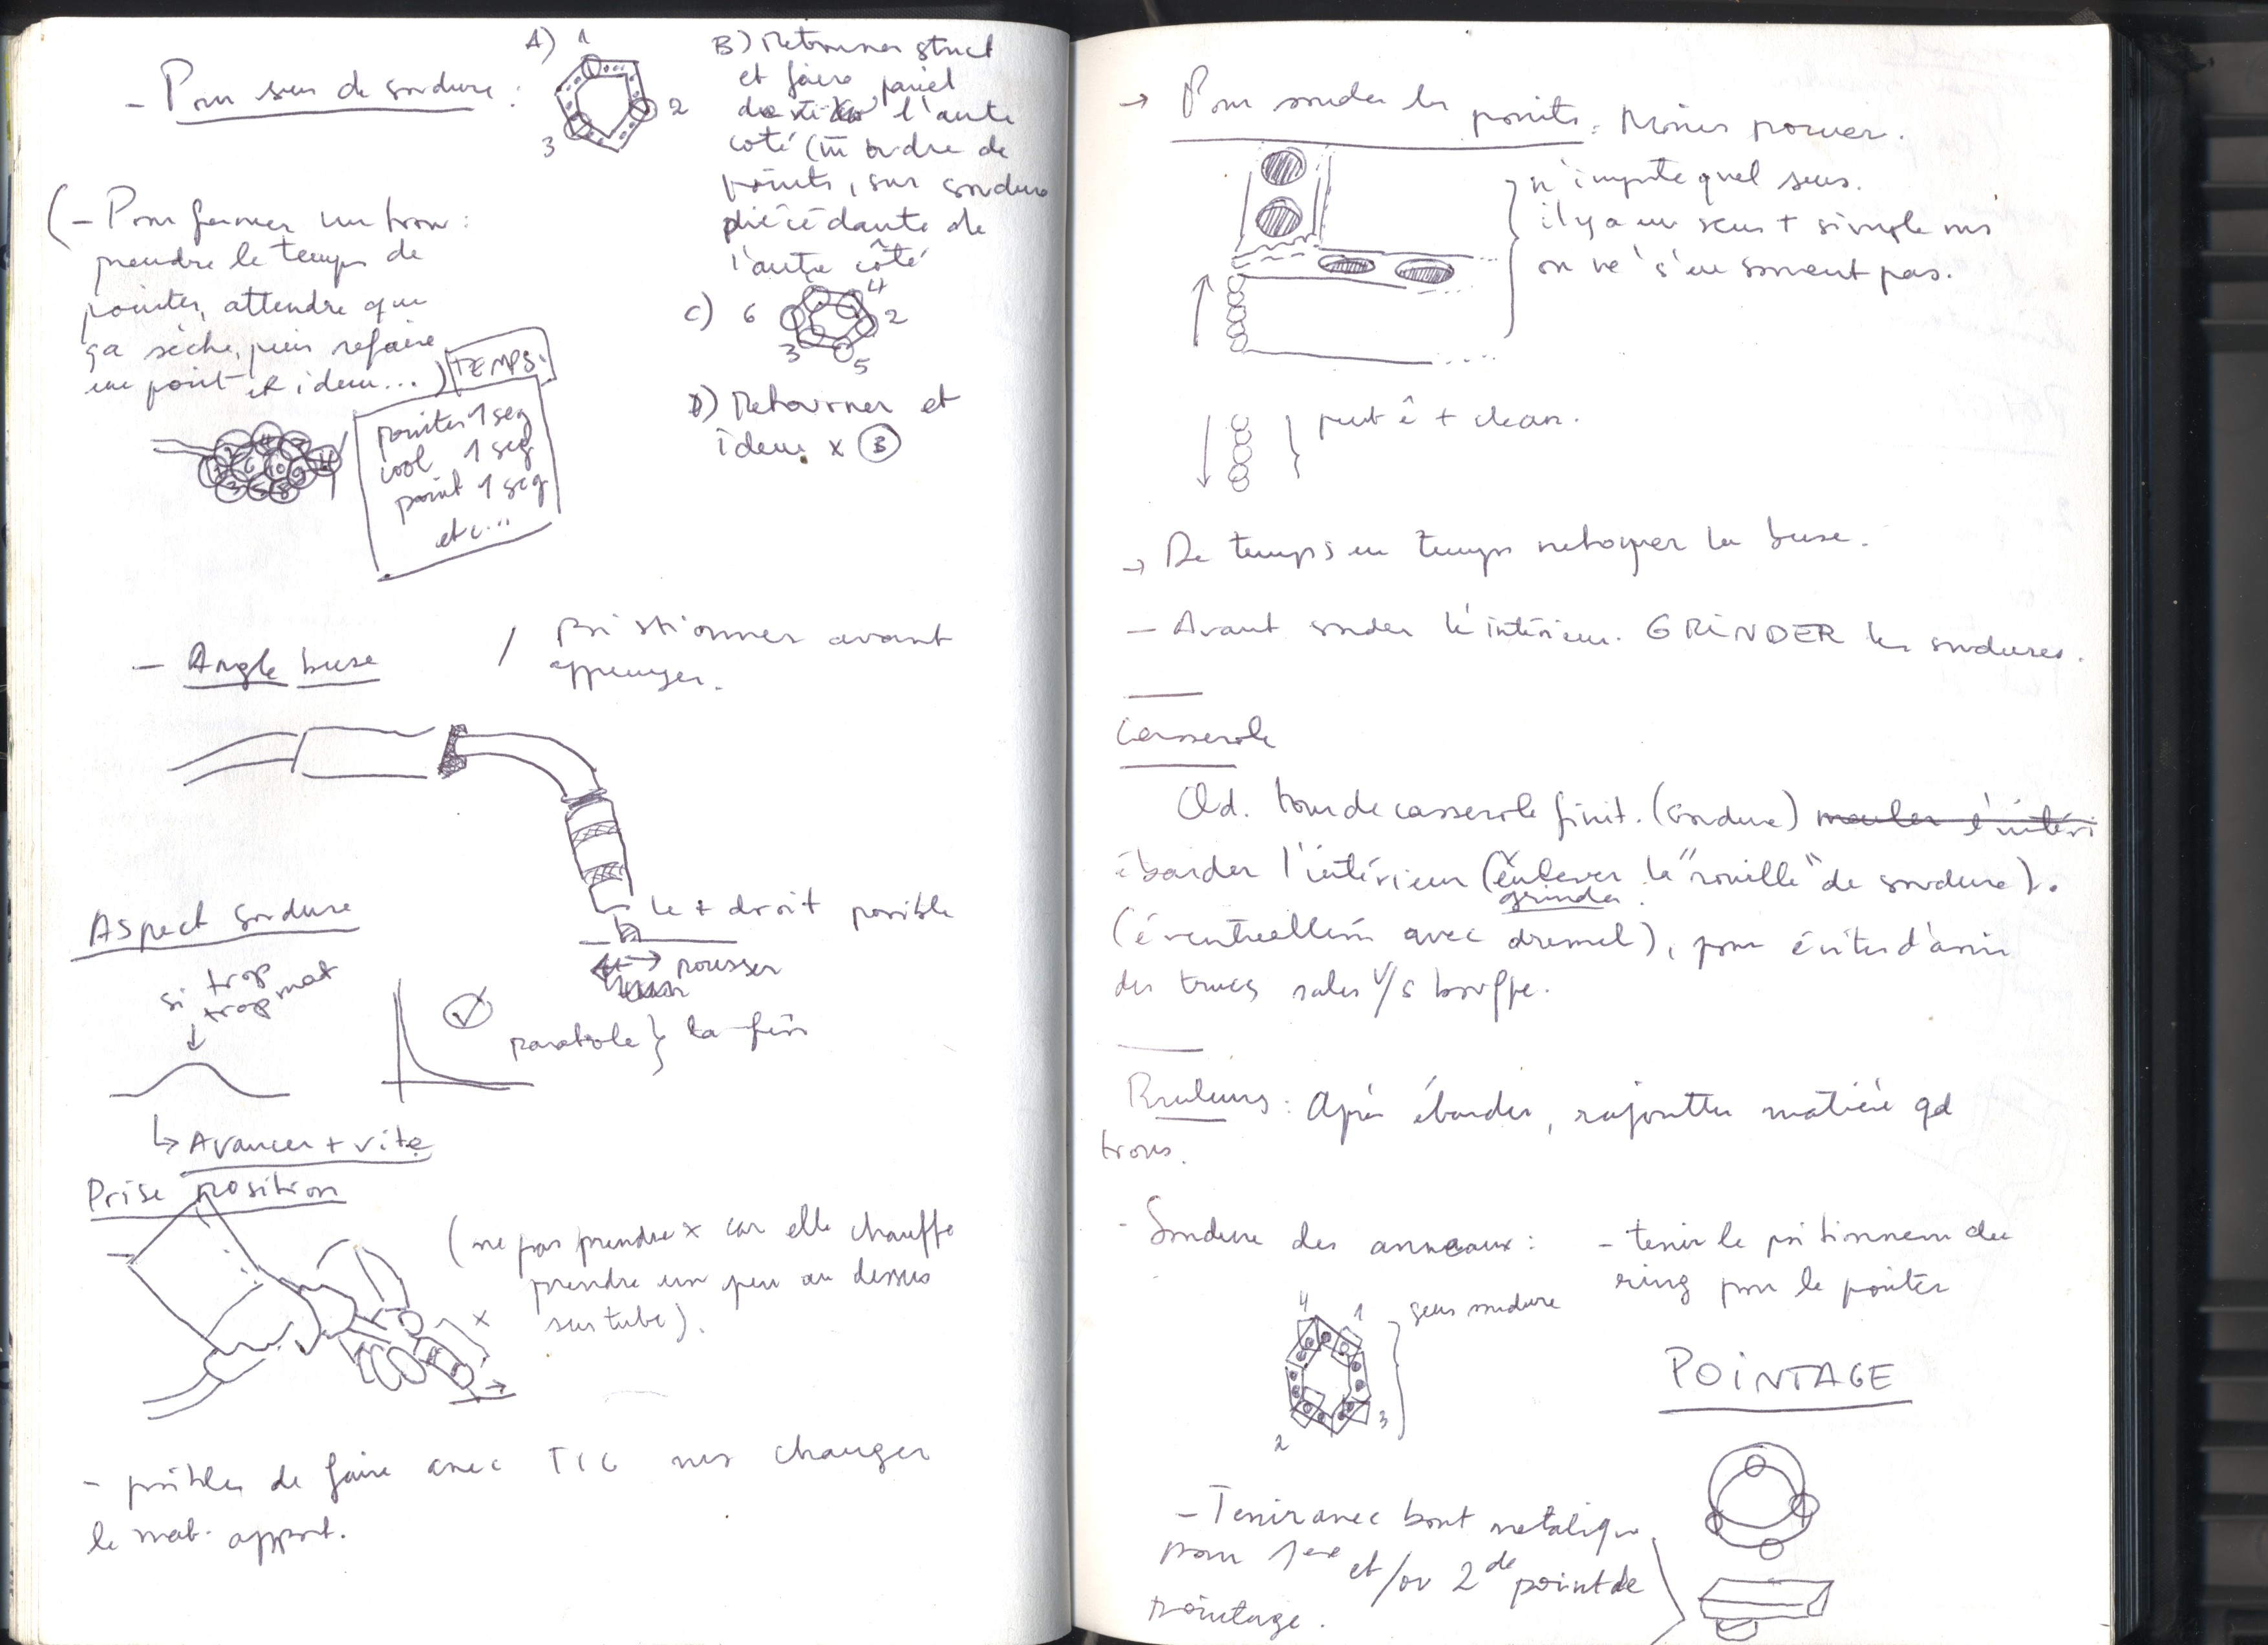 - Pour sens de soudure :
A) 1
2
3
B) Retourner struct
et faire pareil
de l'autre
coté (m̄ ordre de
points, sur soudure
précédante de
l'autre côté
C) 6 4 2
3 5
D) Retourner et
idem x 3
(- Pour fermer un trou :
prendre le temps de
pointer, attendre que
ça sèche, puis refaire
un point et idem...)
TEMPS:
pointer 1 seg
cool 1 seg
point 1 seg
etc...
- Angle buse / positionner avant
appuyer.
le + droit possible
pousser
Aspect soudure
si trop
trop mat
parabole } la fin
↳ Avancer + vite
Prise position
(ne pas prendre x car elle chauffe
prendre un peu au dessus
sur tube).
x
- possibles de faire avec TIG mes changer
le mat. apport.
→ Pour souder les points : Moins power.
n'importe quel sens.
il y a un sens + simple ms
on ne s'en souvient pas.
peut ê + clean.
→ De temps en temps nettoyer la buse.
- Avant souder l'intérieur. GRINDER les soudures.
Casserole
Qd. tour de casserole finit. (soudure) l'intéri
ébarder l'intérieur (enlever la "rouille" de soudure).
grinder
(éventuellem avec dremel), pour éviter d'avoir
des trucs sales v/s bouffe.
Bruleurs : Après ébarder, rajoutter matière qd
trous.
- Soudure des anneaux : - tenir le positionnem du
ring pour le pointer
4 1 sens soudure
2 3
POINTAGE
- Tenir avec bout métalique
pour 1ere et/ou 2de point de
pointage.